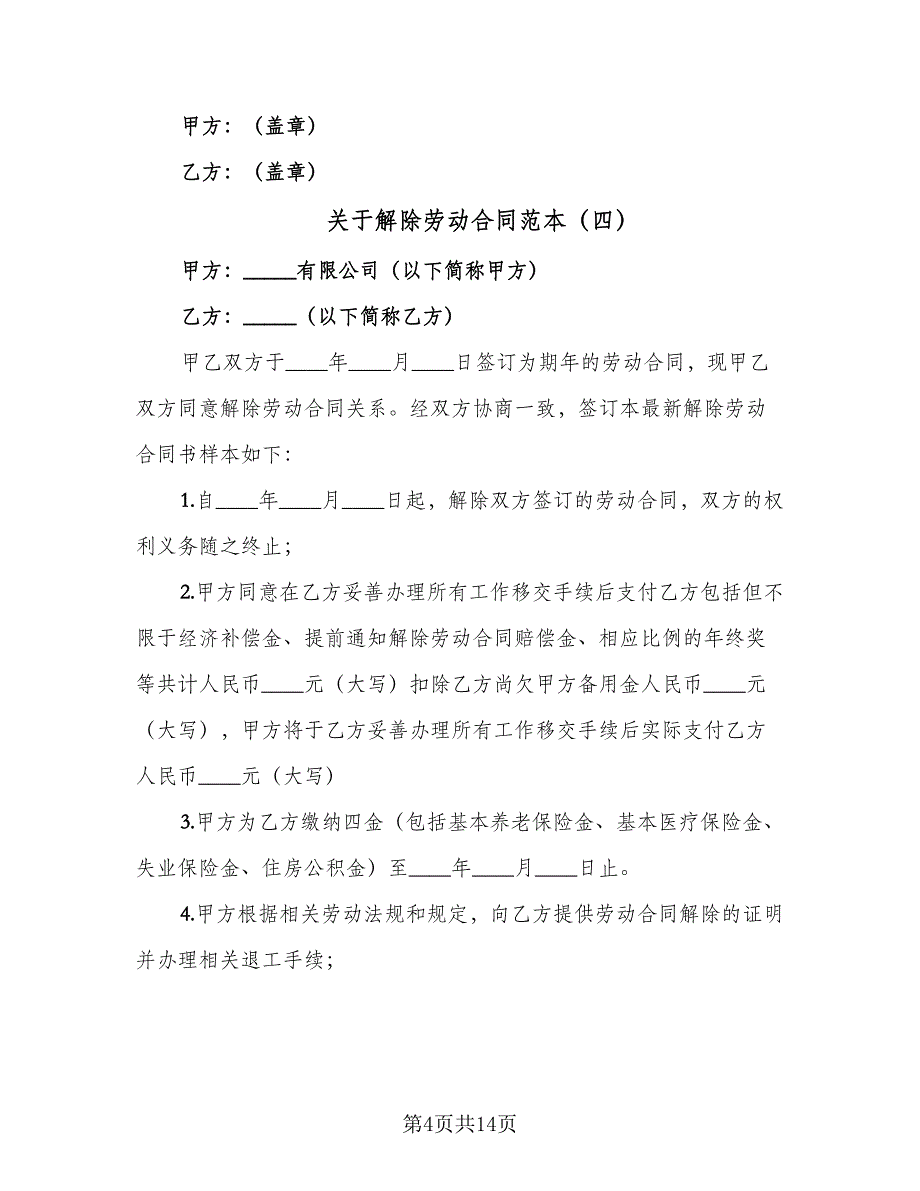 甲方：（盖章）
乙方：（盖章）
关于解除劳动合同范本（四）
甲方：_____有限公司（以下简称甲方）
乙方：_____（以下简称乙方）
甲乙双方于____年____月____日签订为期年的劳动合同，现甲乙
双方同意解除劳动合同关系。经双方协商一致，签订本最新解除劳动
合同书样本如下：
1.自____年____月____日起，解除双方签订的劳动合同，双方的权
利义务随之终止；
2.甲方同意在乙方妥善办理所有工作移交手续后支付乙方包括但不
限于经济补偿金、提前通知解除劳动合同赔偿金、相应比例的年终奖
等共计人民币____元（大写）扣除乙方尚欠甲方备用金人民币____元
（大写），甲方将于乙方妥善办理所有工作移交手续后实际支付乙方
人民币____元（大写）
3.甲方为乙方缴纳四金（包括基本养老保险金、基本医疗保险金、
失业保险金、住房公积金）至____年____月____日止。
4.甲方根据相关劳动法规和规定，向乙方提供劳动合同解除的证明
并办理相关退工手续；
第4页共14页